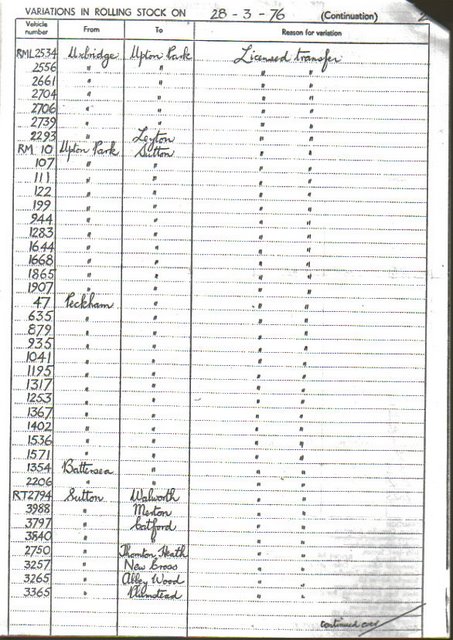 VARIATIONS IN ROLLING STOCK ON 28-3-76 (Continuation) 2
Vehicle number From To Reason for variation
RML2534 Uxbridge Upton Park Licensed transfer
2556 " " " "
2661 " " " "
2704 " " " "
2706 " " " "
2739 " " " "
2293 " Leyton " "
RM 10 Upton Park Sutton " "
107 " " " "
111 " " " "
122 " " " "
199 " " " "
944 " " " "
1283 " " " "
1644 " " " "
1668 " " " "
1865 " " " "
1907 " " " "
47 Peckham " " "
635 " " " "
879 " " " "
935 " " " "
1041 " " " "
1195 " " " "
1317 " " " "
1253 " " " "
1367 " " " "
1402 " " " "
1536 " " " "
1571 " " " "
1354 Battersea " " "
2206 " " " "
RT2794 Sutton Walworth " "
3988 " Merton " "
3797 " Catford " "
3840 " " " "
2750 " Thornton Heath " "
3257 " New Cross " "
3265 " Abbey Wood " "
3365 " Plumstead " "
continued over